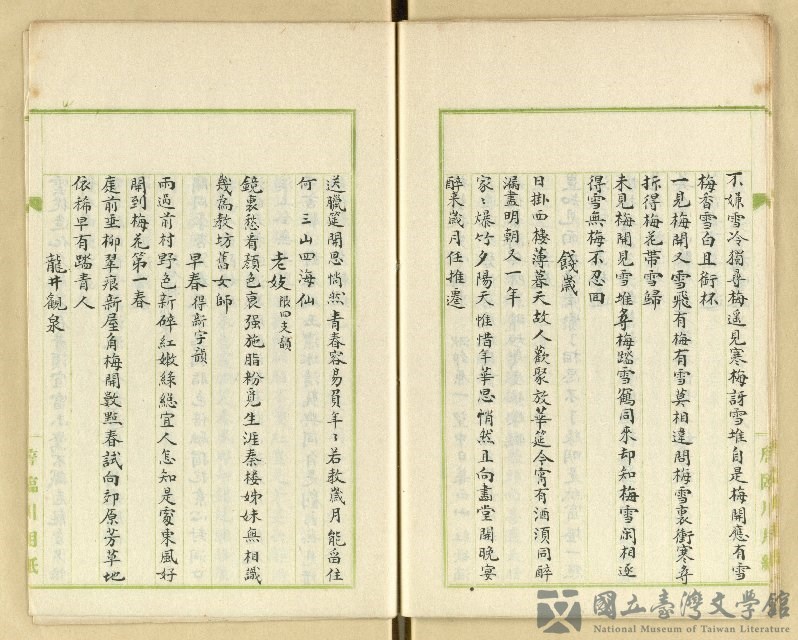 不嫌雪冷獨尋梅遙見寒梅訝雪堆自是梅開應有雪
梅香雪白且銜杯
一見梅開又雪飛有梅有雪莫相違問梅雪裏衝寒尋
折得梅花帶雪歸
未見梅開見雪堆尋梅踏雪鶴同來却知梅雪閑相逐
得雪無梅不忍回
餞歲
日掛西樓薄暮天故人歡聚放華筵今宵有酒須同醉
漏盡明朝又一年
家〻爆竹夕陽天惟惜年華思悄然且向畫堂開晚宴
醉來歲月任推遷
送臘筵開思悄然青春容易負年〻若教歲月能留住
何三山四海仙
老妓限四支韻
鏡裏愁看顏色衰强施脂粉覓生涯秦樓姊妹無相識
幾為教坊舊女師
早春得新字韻
雨過前村野色新碎紅嫩綠總宜人怎知是處東風好
開到梅花第一春
庭前垂柳翠痕新屋角梅開數點春試向郊原芳草地
依稀早有踏青人
龍井觀泉
臨川用紙
國立臺灣文學館
National Museum of Taiwan Literature